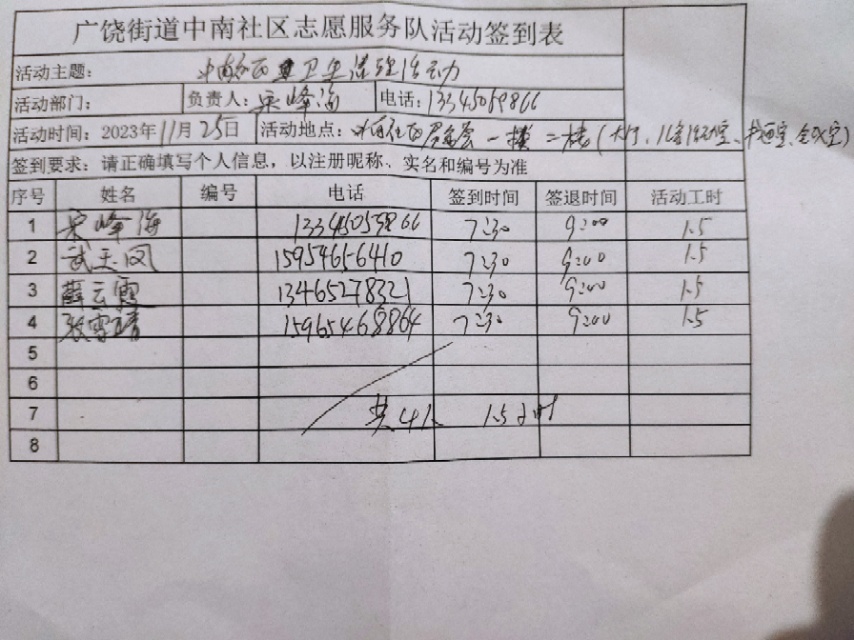 广饶街道中南社区志愿服务队活动签到表
活动主题： 卫生清理活动
活动部门： 负责人：宋峰海 电话：13345059866
活动时间：2023年11月25日 活动地点： 一楼 二楼（大厅、
签到要求：请正确填写个人信息，以注册昵称、实名和编号为准
序号 姓名 编号 电话 签到时间 签退时间 活动工时
1 宋峰海 13345059866 7:30 9:00 1.5
2 武玉凤 15954656410 7:30 9:00 1.5
3 薛云霞 13465278321 7:30 9:00 1.5
4 张雪靖 15965468864 7:30 9:00 1.5
5
6
7 共4人 1.5小时
8